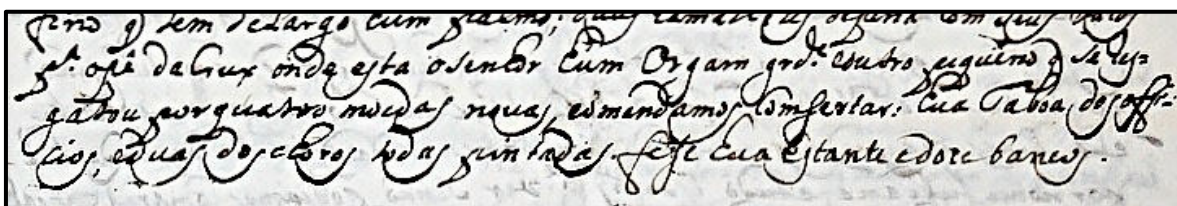 ferro q tem de Largo hum palmo, duas
pª. o pè da Crux onde esta o senhor hum Orgam grdᵉ. e outro piquino q se res-
gatou por quatro moedas novas, e o mandamos Comsertar: hua Taboa dos offi-
cios, e duas dos choros todas pintadas fese hua estante e doze bancos.